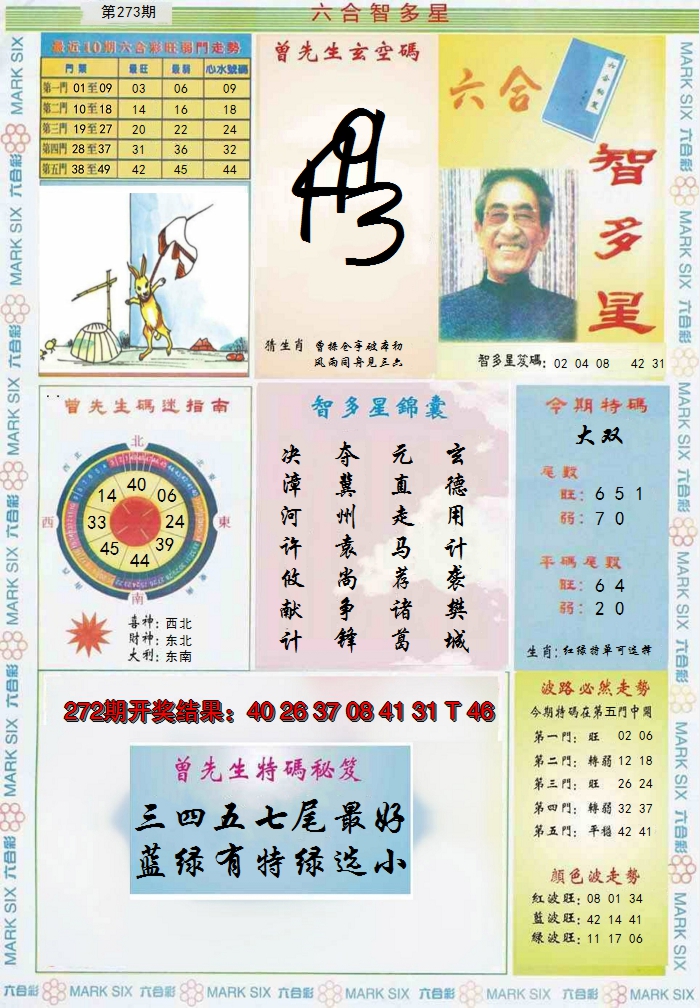 第273期
六合智多星
最近10期六合彩旺弱門走勢
門類 最旺 最弱 心水號碼
第一門 01至09 03 06 09
第二門 10至18 14 16 18
第三門 19至27 20 22 24
第四門 28至37 31 36 32
第五門 38至49 42 45 44
曾先生玄空碼
猜生肖 曾操仓亭破本初
风雨同舟见三六
六合
智多星
智多星笈碼: 02 04 08 42 31
曾先生碼迷指南
北
西
東
南
40
06
24
39
44
45
33
14
喜神: 西北
財神: 东北
大利: 东南
智多星錦囊
玄德用计袭樊城
元直走马荐诸葛
夺冀州袁尚争锋
决漳河许攸献计
今期特碼
大双
尾數
旺: 6 5 1
弱: 7 0
平碼尾數
旺: 6 4
弱: 2 0
生肖: 红绿特单可选择
272期开奖结果: 40 26 37 08 41 31 T 46
曾先生特碼秘笈
三四五七尾最好
蓝绿有特绿选小
波路必然走勢
今期特碼在第五門中開
第一門: 旺 02 06
第二門: 轉弱 12 18
第三門: 旺 26 24
第四門: 轉弱 32 37
第五門: 平穩 42 41
顏色波走勢
紅波旺: 08 01 34
藍波旺: 42 14 41
綠波旺: 11 17 06
六合彩 MARK SIX 六合彩 MARK SIX 六合彩 MARK SIX 六合彩 MARK SIX 六合彩